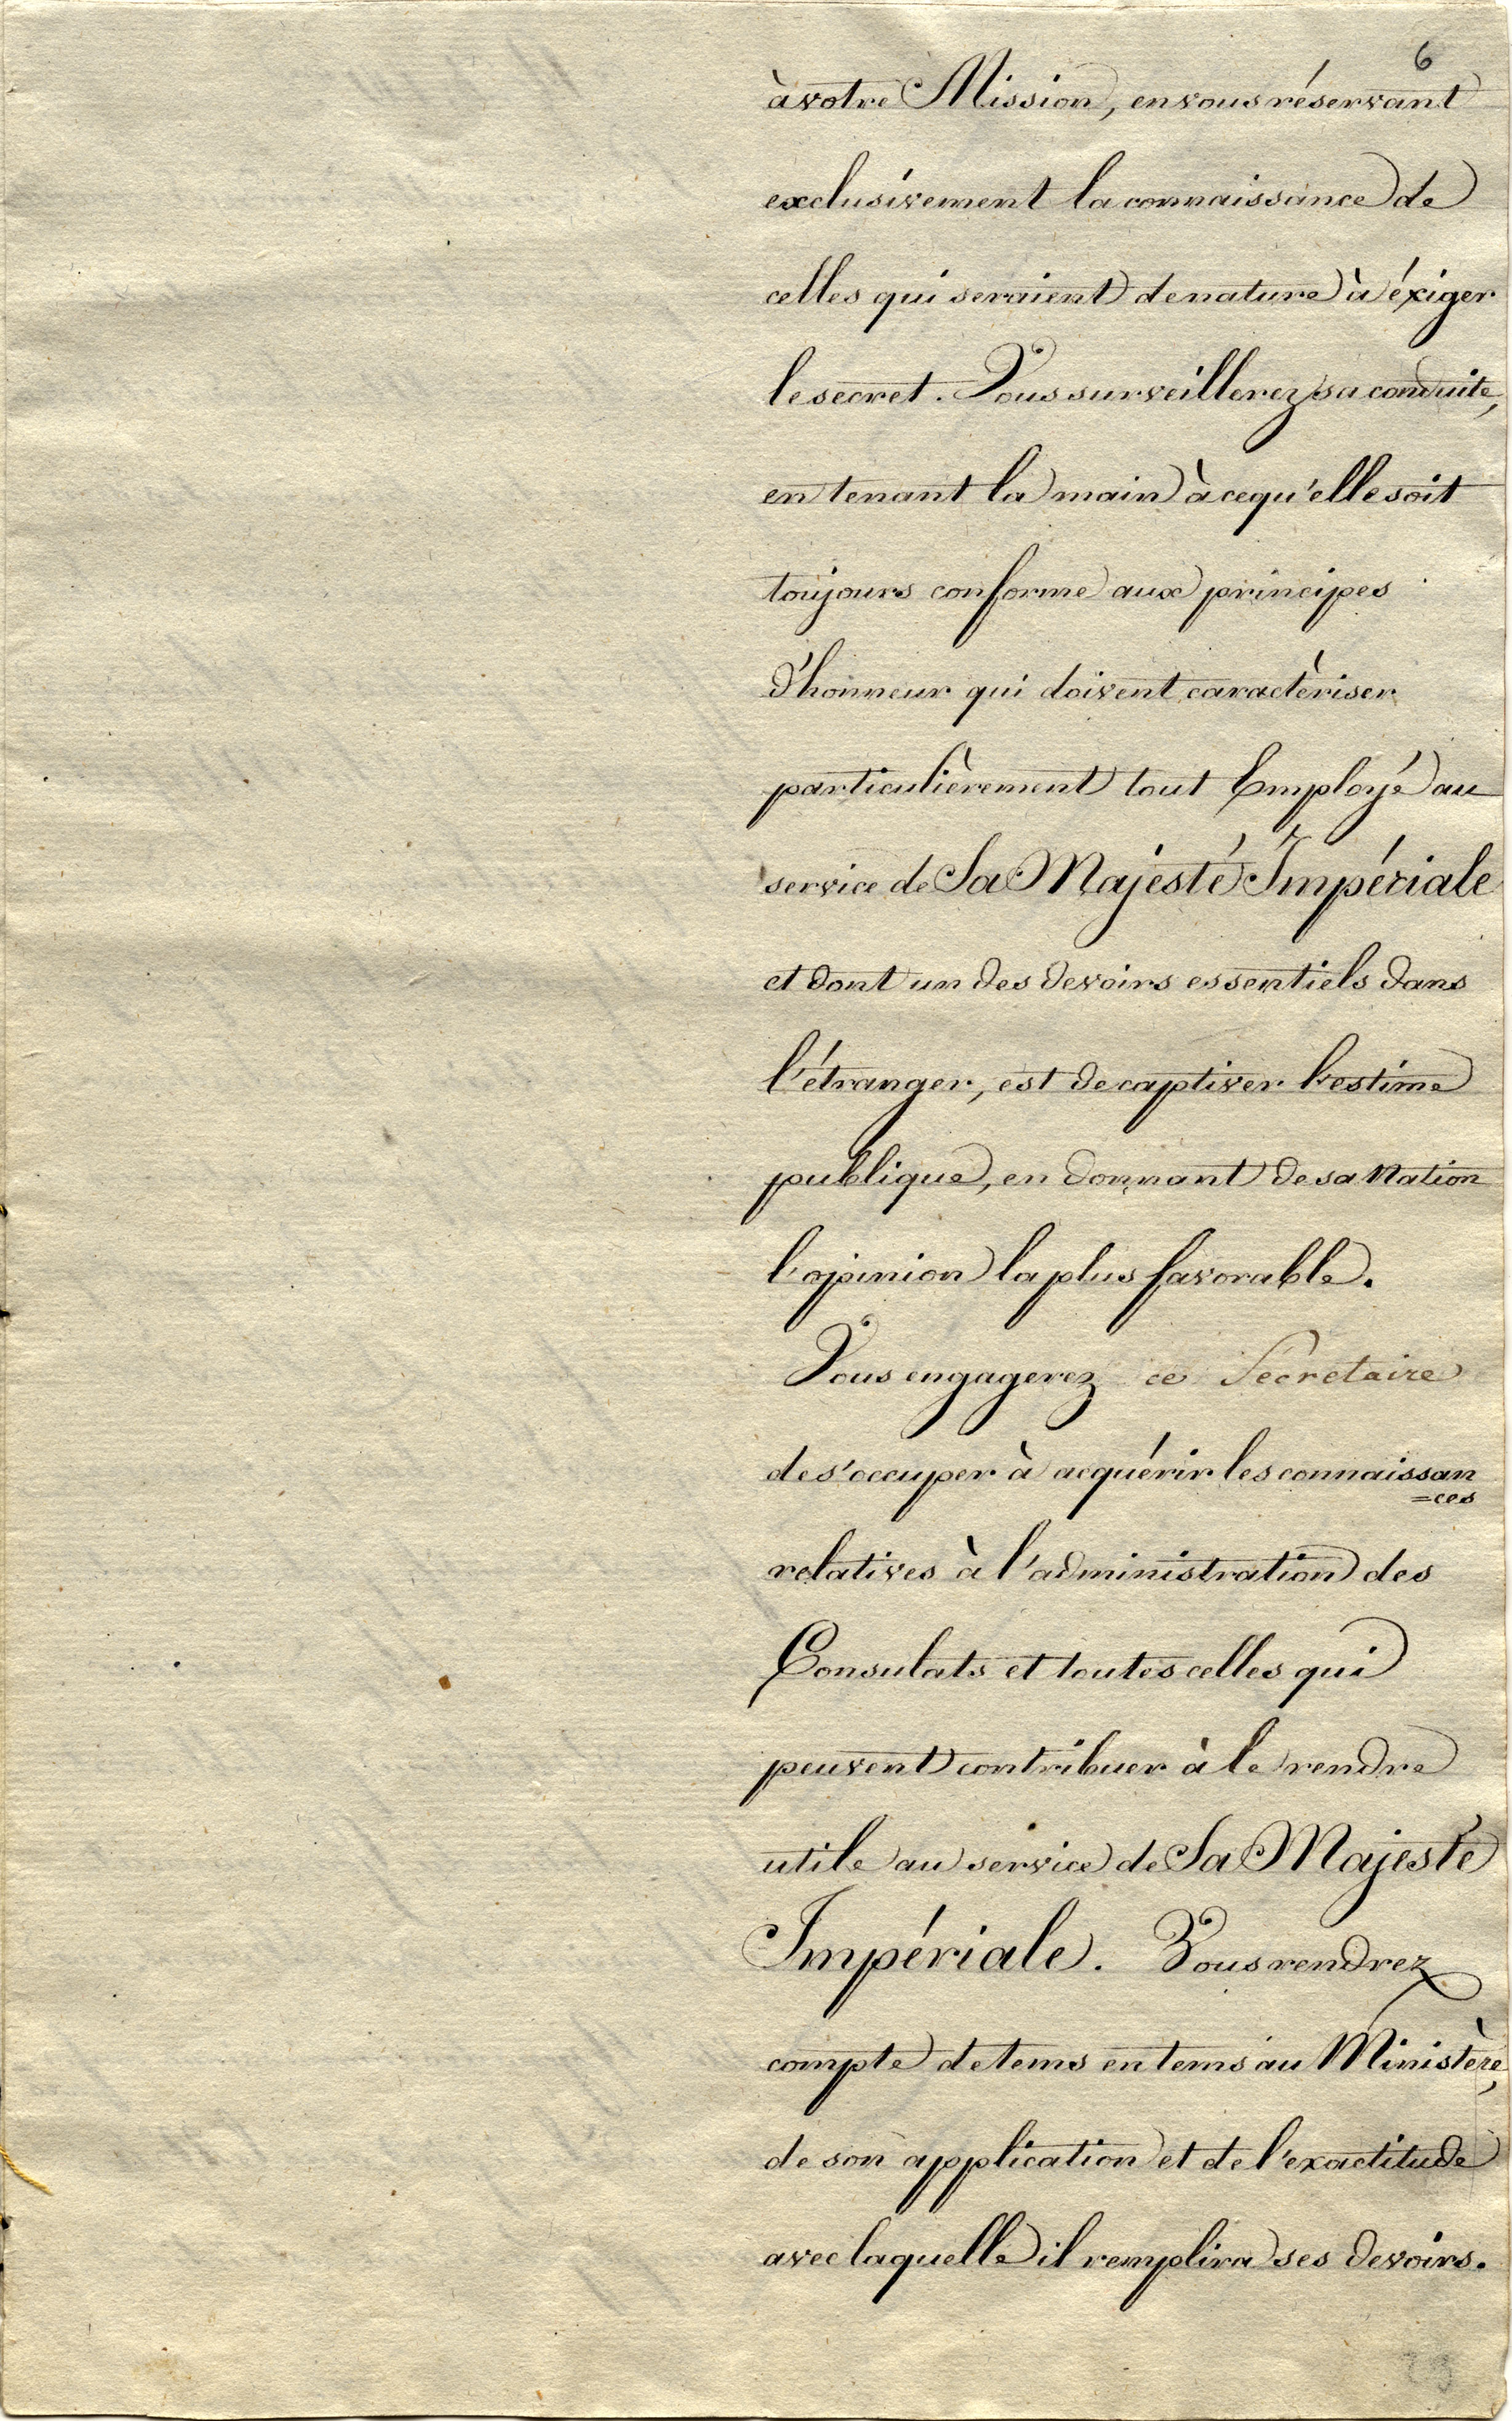 6
à votre Mission, en vous réservant
exclusivement la connaissance de
celles qui seraient de nature à éxiger
le secret. Vous surveillerez sa conduite,
en tenant la main à cequ'elle soit
toujours conforme aux principes
d'honneur qui doivent caractèriser
particulièrement tout Employé au
service de Sa Majésté Impériale
et dont un des devoirs essentiels dans
l'étranger, est de captiver l'estime
publique, en donnant de sa Nation
l'opinion la plus favorable.
Vous engagerez ce Secretaire
de s'occuper à acquérir les connaissan
=ces
relatives à l'administration des
Consulats et toutes celles qui
peuvent contribuer à le rendre
utile au service de Sa Majesté
Impériale. Vous rendrez
compte de tems en tems au Ministère,
de son application et de l'exactitude
avec laquelle il remplira ses devoirs.